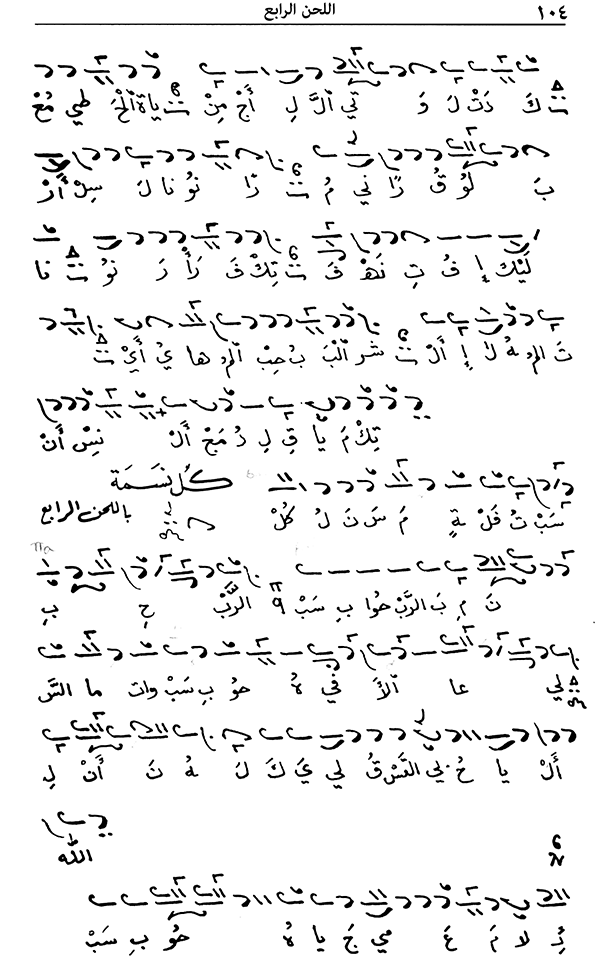 ١٠٤ اللحن الرابع
كَ دَتْ لَ وَ تي الَّ لِ أَجْ مِنْ ياةَ الْحَ طي مُعْ
بَ لُوْ قُ زا ني مُ زا نُو نا لَ سِلْ أَرْ
لَيْكَ إِ فُ تِ نَهْ فَ تِكْ فَ رَأْ رَ نُو نا
تَ المِ هُ لَ إِ أَلْ شَرِ الْبَ بُ حِبْ المِ ها يُ أَيْ
تِكْ مَ يا قِ لِ دُ مَجْ أَلْ نِسْ أَنْ
كُلُّ نَسَمَة
سَبْ تُ فَلْ ةٍ مَ سَ نَ لُ كُلْ باللحن الرابع
نَ مِ بَ الرَّبْ حُوا بِ سَبْ الرَّبْ حِ بِ
لي عا الأَ في هُ حُو بِ سَبْ وات ما السَّ
أَلْ يا حُ بي التَسْ قُ لي يَ كَ لَ هُ نَ أَنْ لِ
الله
دِ لا مَ عَ مي جَ يا هُ حُو بِ سَبْ